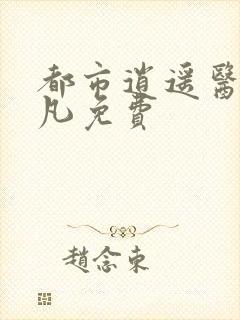 都市逍遥醫
凡免費
趙念東